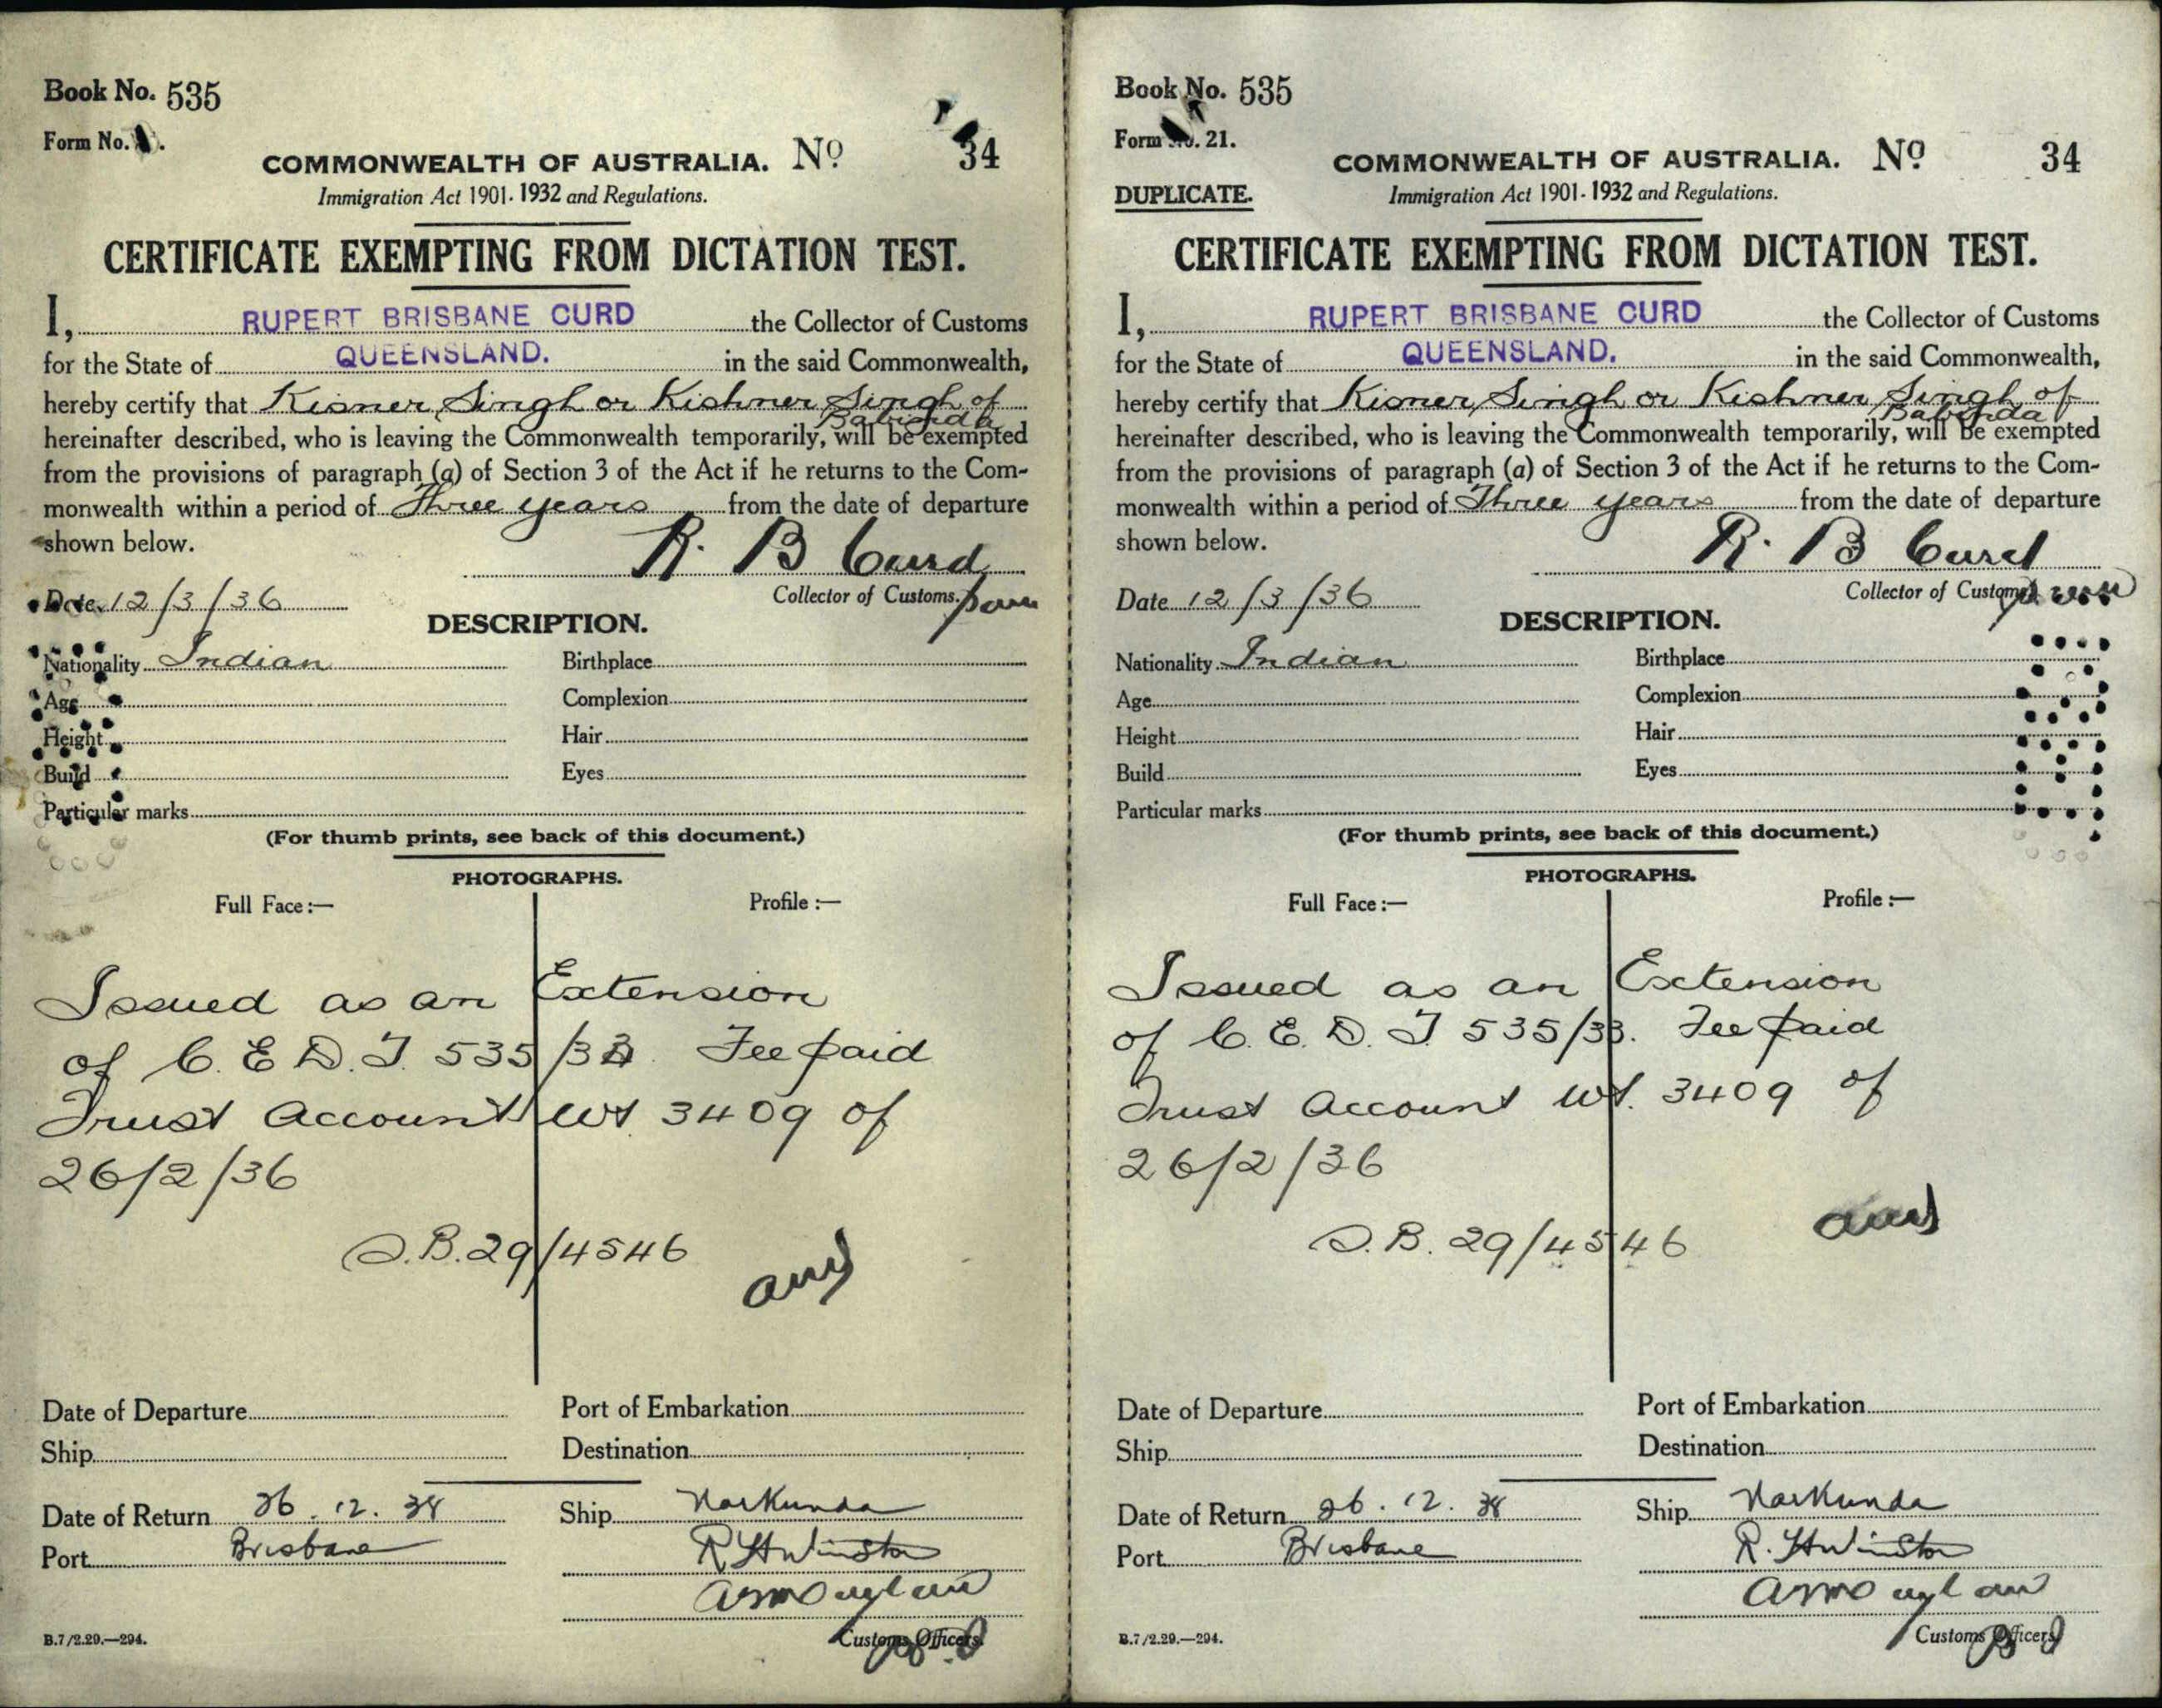 Book No. 535
Form No.
COMMONWEALTH OF AUSTRALIA. No 34
Immigration Act 1901-1932 and Regulations.
CERTIFICATE EXEMPTING FROM DICTATION TEST.
I, RUPERT BRISBANE CURD the Collector of Customs
for the State of QUEENSLAND. in the said Commonwealth,
hereby certify that Kisner Singh or Kishner Singh of
Babinda
hereinafter described, who is leaving the Commonwealth temporarily, will be exempted
from the provisions of paragraph (a) of Section 3 of the Act if he returns to the Com-
monwealth within a period of Three years from the date of departure
shown below.
R. B Curd
Date 12/3/36 Collector of Customs.
DESCRIPTION.
Nationality Indian Birthplace
Age Complexion
Height Hair
Build Eyes
Particular marks
(For thumb prints, see back of this document.)
PHOTOGRAPHS.
Full Face:— Profile:—
Issued as an Extension
of C. E. D. T. 535/33. Fee paid
Trust Account Wt. 3409 of
26/2/36
S.B. 29/4546
Date of Departure Port of Embarkation
Ship Destination
Date of Return 26.12.38 Ship Narkunda
Port Brisbane R. H Winston
B.7/2.29.—294. Customs Officers.
Book No. 535
Form No. 21.
COMMONWEALTH OF AUSTRALIA. No 34
DUPLICATE. Immigration Act 1901-1932 and Regulations.
CERTIFICATE EXEMPTING FROM DICTATION TEST.
I, RUPERT BRISBANE CURD the Collector of Customs
for the State of QUEENSLAND. in the said Commonwealth,
hereby certify that Kisner Singh or Kishner Singh of
Babinda
hereinafter described, who is leaving the Commonwealth temporarily, will be exempted
from the provisions of paragraph (a) of Section 3 of the Act if he returns to the Com-
monwealth within a period of Three years from the date of departure
shown below.
R. B Curd
Date 12/3/36 Collector of Customs.
DESCRIPTION.
Nationality Indian Birthplace
Age Complexion
Height Hair
Build Eyes
Particular marks
(For thumb prints, see back of this document.)
PHOTOGRAPHS.
Full Face:— Profile:—
Issued as an Extension
of C. E. D. T 535/33. Fee paid
Trust Account Wt. 3409 of
26/2/36
S.B. 29/4546
Date of Departure Port of Embarkation
Ship Destination
Date of Return 26.12.38 Ship Narkunda
Port Brisbane R. H Winston
B.7/2.29.—294. Customs Officers